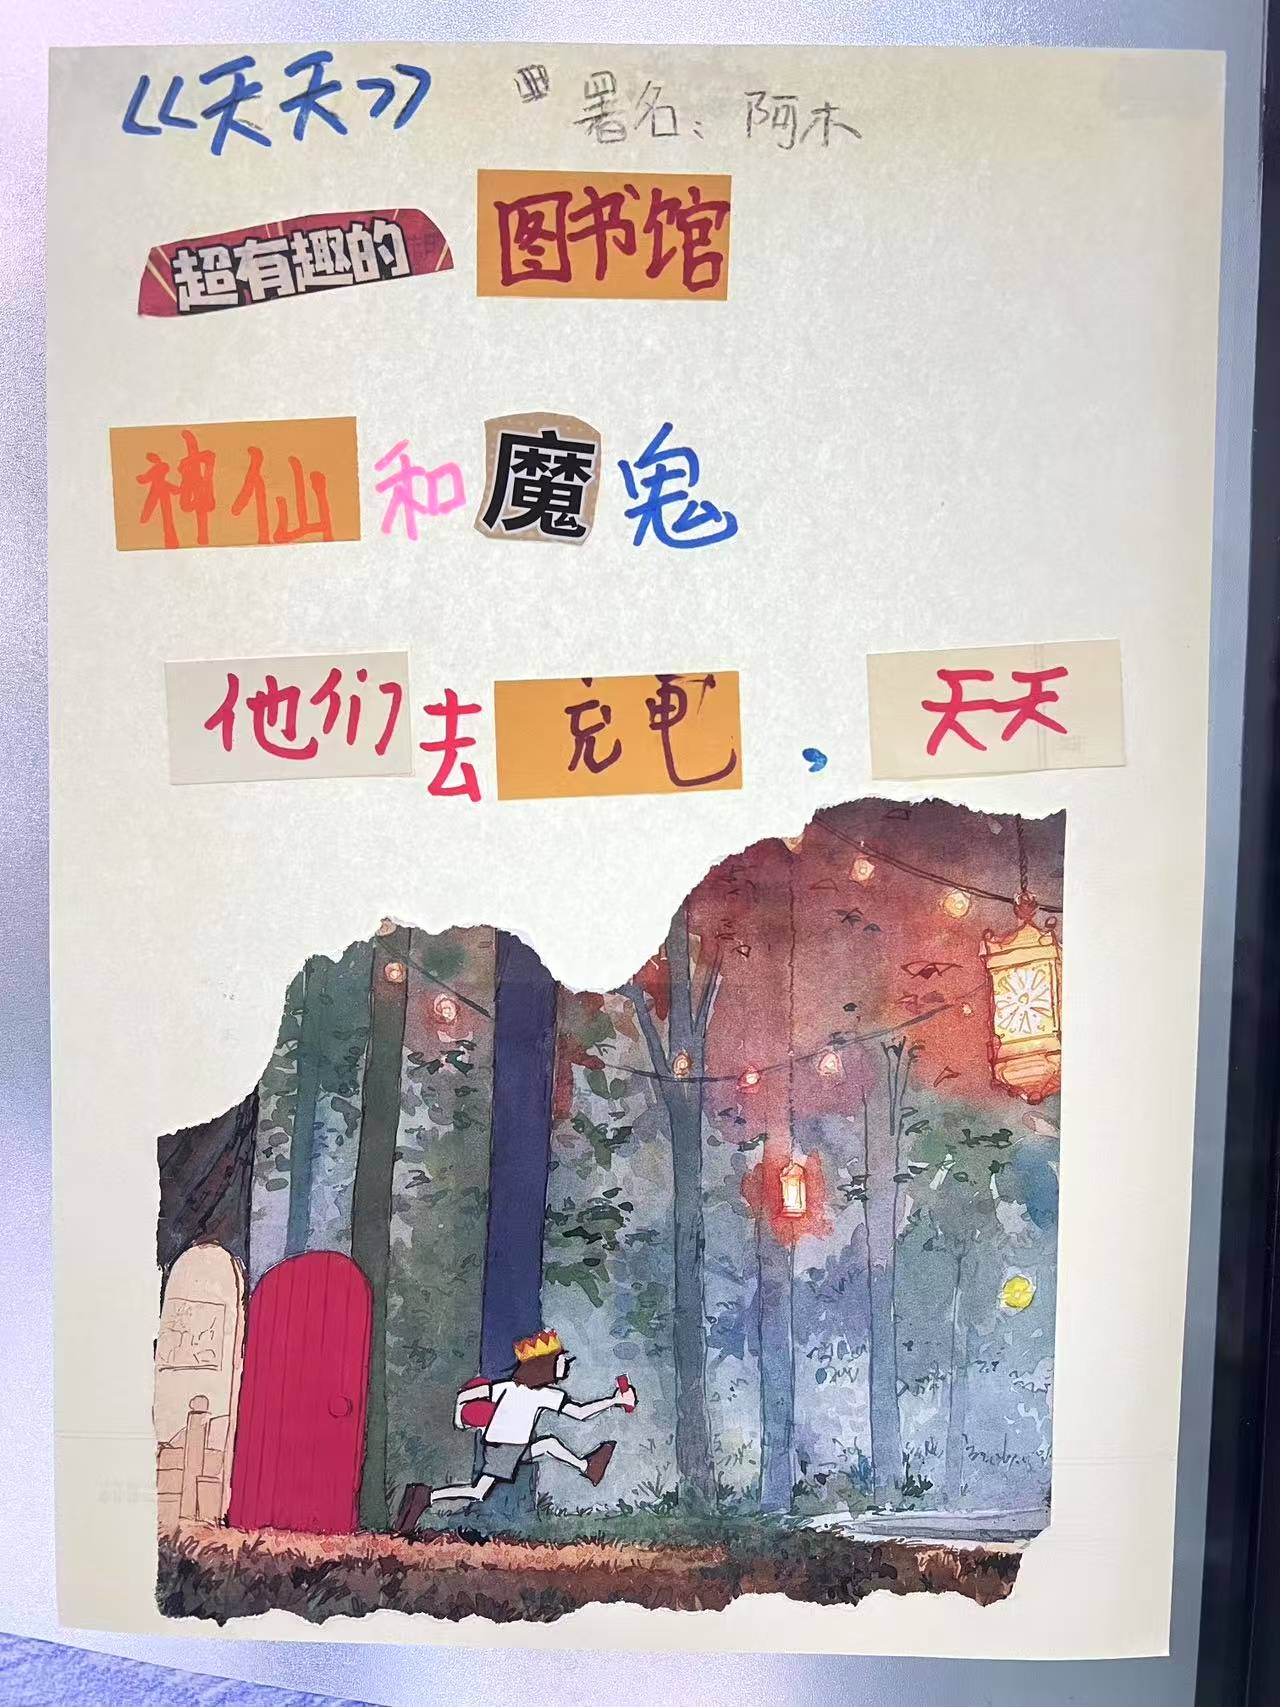 《天天》 署名：阿木
超有趣的 图书馆
神仙和魔鬼
他们去充电，天天